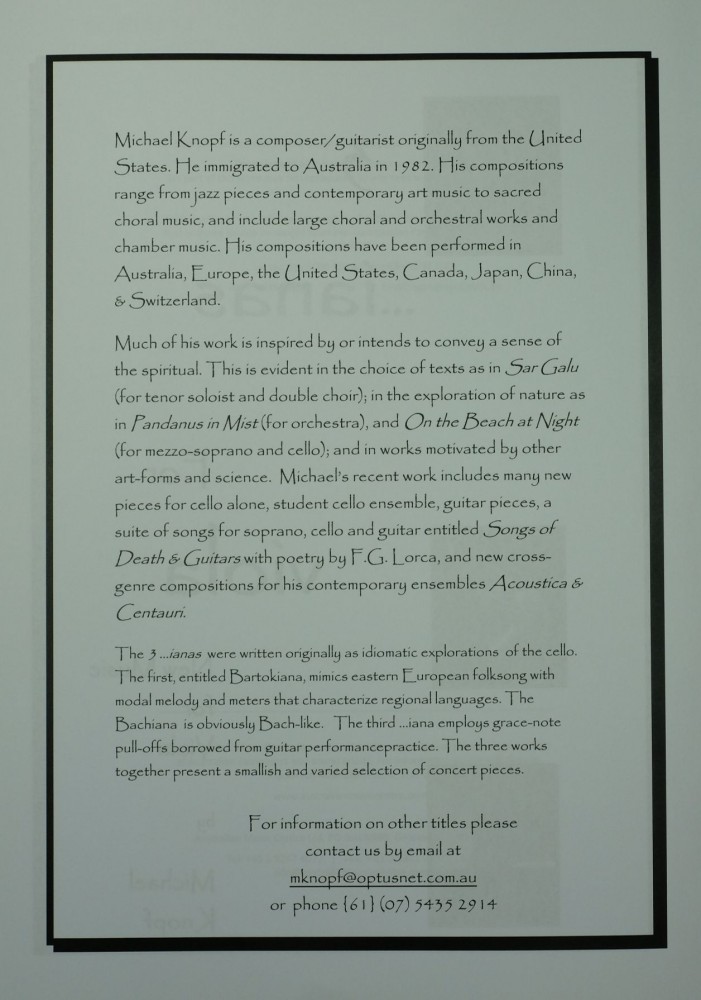 Michael Knopf is a composer/guitarist originally from the United
States. He immigrated to Australia in 1982. His compositions
range from jazz pieces and contemporary art music to sacred
choral music, and include large choral and orchestral works and
chamber music. His compositions have been performed in
Australia, Europe, the United States, Canada, Japan, China,
& Switzerland.
Much of his work is inspired by or intends to convey a sense of
the spiritual. This is evident in the choice of texts as in Sar Galu
(for tenor soloist and double choir); in the exploration of nature as
in Pandanus in Mist (for orchestra), and On the Beach at Night
(for mezzo-soprano and cello); and in works motivated by other
art-forms and science. Michael's recent work includes many new
pieces for cello alone, student cello ensemble, guitar pieces, a
suite of songs for soprano, cello and guitar entitled Songs of
Death & Guitars with poetry by F.G. Lorca, and new cross-
genre compositions for his contemporary ensembles Acoustica &
Centauri.
The 3 ...ianas were written originally as idiomatic explorations of the cello.
The first, entitled Bartokiana, mimics eastern European folksong with
modal melody and meters that characterize regional languages. The
Bachiana is obviously Bach-like. The third ...iana employs grace-note
pull-offs borrowed from guitar performancepractice. The three works
together present a smallish and varied selection of concert pieces.
For information on other titles please
contact us by email at
mknopf@optusnet.com.au
or phone {61} (07) 5435 2914